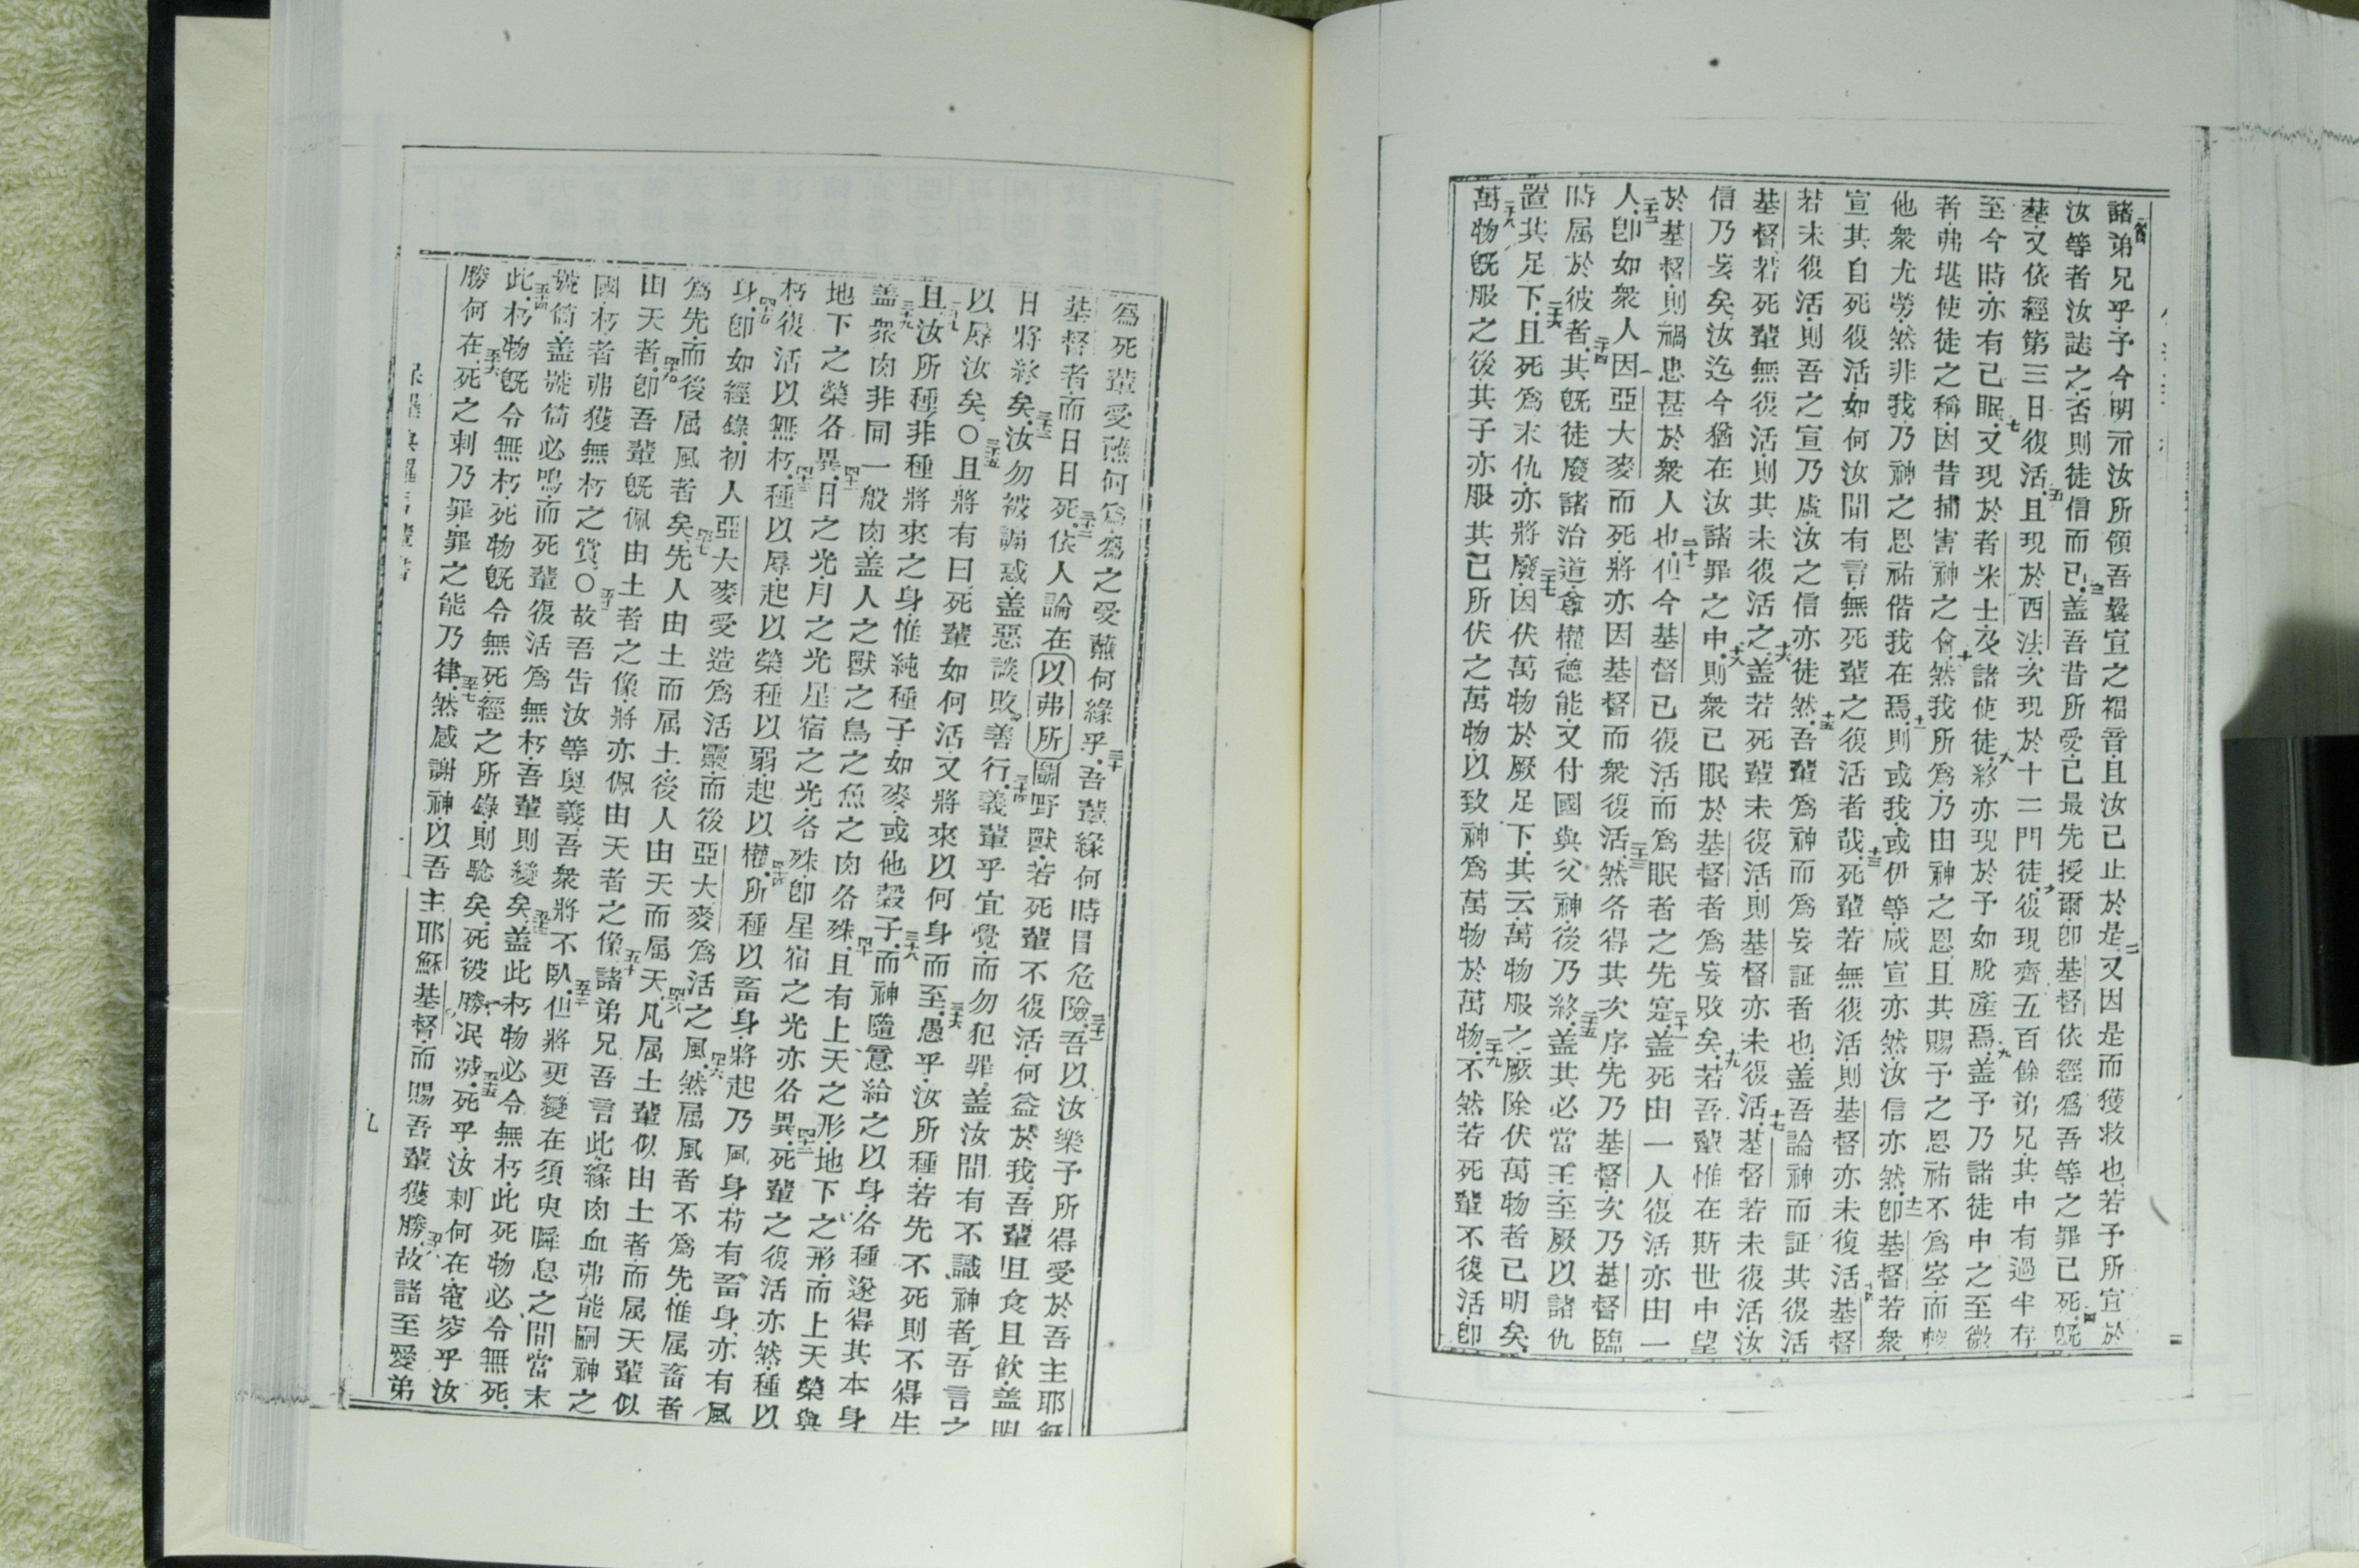 諸弟兄乎予今明示汝所領吾曩宣之福音且汝已止於是又因是而獲救也若予所宣於
汝等者汝誌之否則徒信而已蓋吾昔所受已最先授爾卽基督依經爲吾等之罪已死旣
葬又依經第三日復活且現於西法次現於十二門徒復現齊五百餘弟兄其中有過半存
至今時亦有已眠又現於者米士及諸使徒終亦現於予如脫產焉蓋予乃諸徒中之至微
者弗堪使徒之稱因昔捕害神之會然我所爲乃由神之恩且其賜予之恩祐不爲空而
他衆尤勞然非我乃神之恩祐偕我在焉則或我或伊等咸宣亦然汝信亦然卽基督若衆
宣其自死復活如何汝間有言無死輩之復活者哉死輩若無復活則基督亦未復活基督
若未復活則吾之宣乃虛汝之信亦徒然吾輩爲神而爲妄証者也蓋吾論神而証其復活
基督若死輩無復活則其未復活之蓋若死輩未復活則基督亦未復活基督若未復活汝
信乃妄矣汝迄今猶在汝諸罪之中則衆已眠於基督者爲妄敗矣若吾輩惟在斯世中望
於基督則禍患甚於衆人也但今基督已復活而爲眠者之先寔蓋死由一人復活亦由一
人卽如衆人因亞大麥而死將亦因基督而衆復活然各得其次序先乃基督次乃基督臨
時属於彼者其旣徒廢諸治道尊權德能又付國與父神後乃終蓋其必當王至厥以諸仇
置其足下且死爲末仇亦將廢因伏萬物於厥足下其云萬物服之厥除伏萬物者已明矣
萬物旣服之後其子亦服其已所伏之萬物以致神爲萬物於萬物不然若死輩不復活卽
二
爲死輩受蘸何爲爲之受蘸何緣乎吾輩緣何時冒危險吾以汝樂予所得受於吾主耶穌
基督者而日日死依人論在以弗所鬬野獸若死輩不復活何益於我吾輩且食且飲蓋明
日將終矣汝勿被誦惑蓋惡談敗善行義輩乎宜覺而勿犯罪蓋汝間有不識神者吾言之
以辱汝矣○且將有曰死輩如何活又將來以何身而至愚乎汝所種若先不死則不得生
且汝所種非種將來之身惟純種子如麥或他穀子而神隨意給之以身各種遂得其本身
蓋衆肉非同一般肉蓋人之獸之鳥之魚之肉各殊且有上天之形地下之形而上天榮與
地下之榮各異日之光月之光星宿之光各殊卽星宿之光亦各異死輩之復活亦然種以
朽復活以無朽種以辱起以榮種以弱起以權所種以畜身將起乃風身若有畜身亦有風
身卽如經錄初人亞大麥受造爲活靈而後亞大麥爲活之風然属風者不爲先惟属畜者
爲先而後屈風者矣先人由土而属土後人由天而属天凡属土輩似由土者而属天輩似
由天者卽吾輩旣佩由土者之像將亦佩由天者之像諸弟兄吾言此緣肉血弗能嗣神之
國朽者弗獲無朽之賞○故吾吿汝等奥義吾衆將不臥但將更變在須臾瞬息之間當末
號筒蓋號筒必鳴而死輩復活爲無朽吾輩則變矣蓋此朽物必令無朽此死物必令無死
此朽物旣令無朽死物旣令無死經之所錄則騐矣死彼勝泯滅死乎汝刺何在寃穸乎汝
勝何在死之刺乃罪罪之能乃律然感謝神以吾主耶穌基督而賜吾輩獲勝故諸至愛弟
九